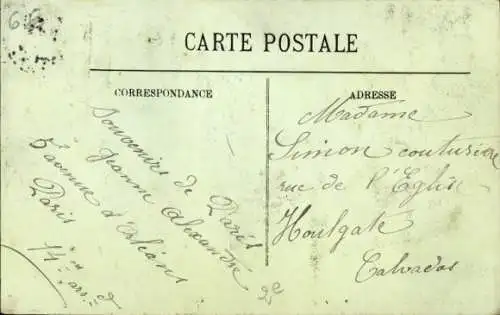 CARTE POSTALE
CORRESPONDANCE
Souvenirs de Paris
Jeanne Alexandre
5 avenue d'Orléans
Paris
14em arr.d
ADRESSE
Madame
Simon couturière
rue de l'Eglise
Houlgate
Calvados